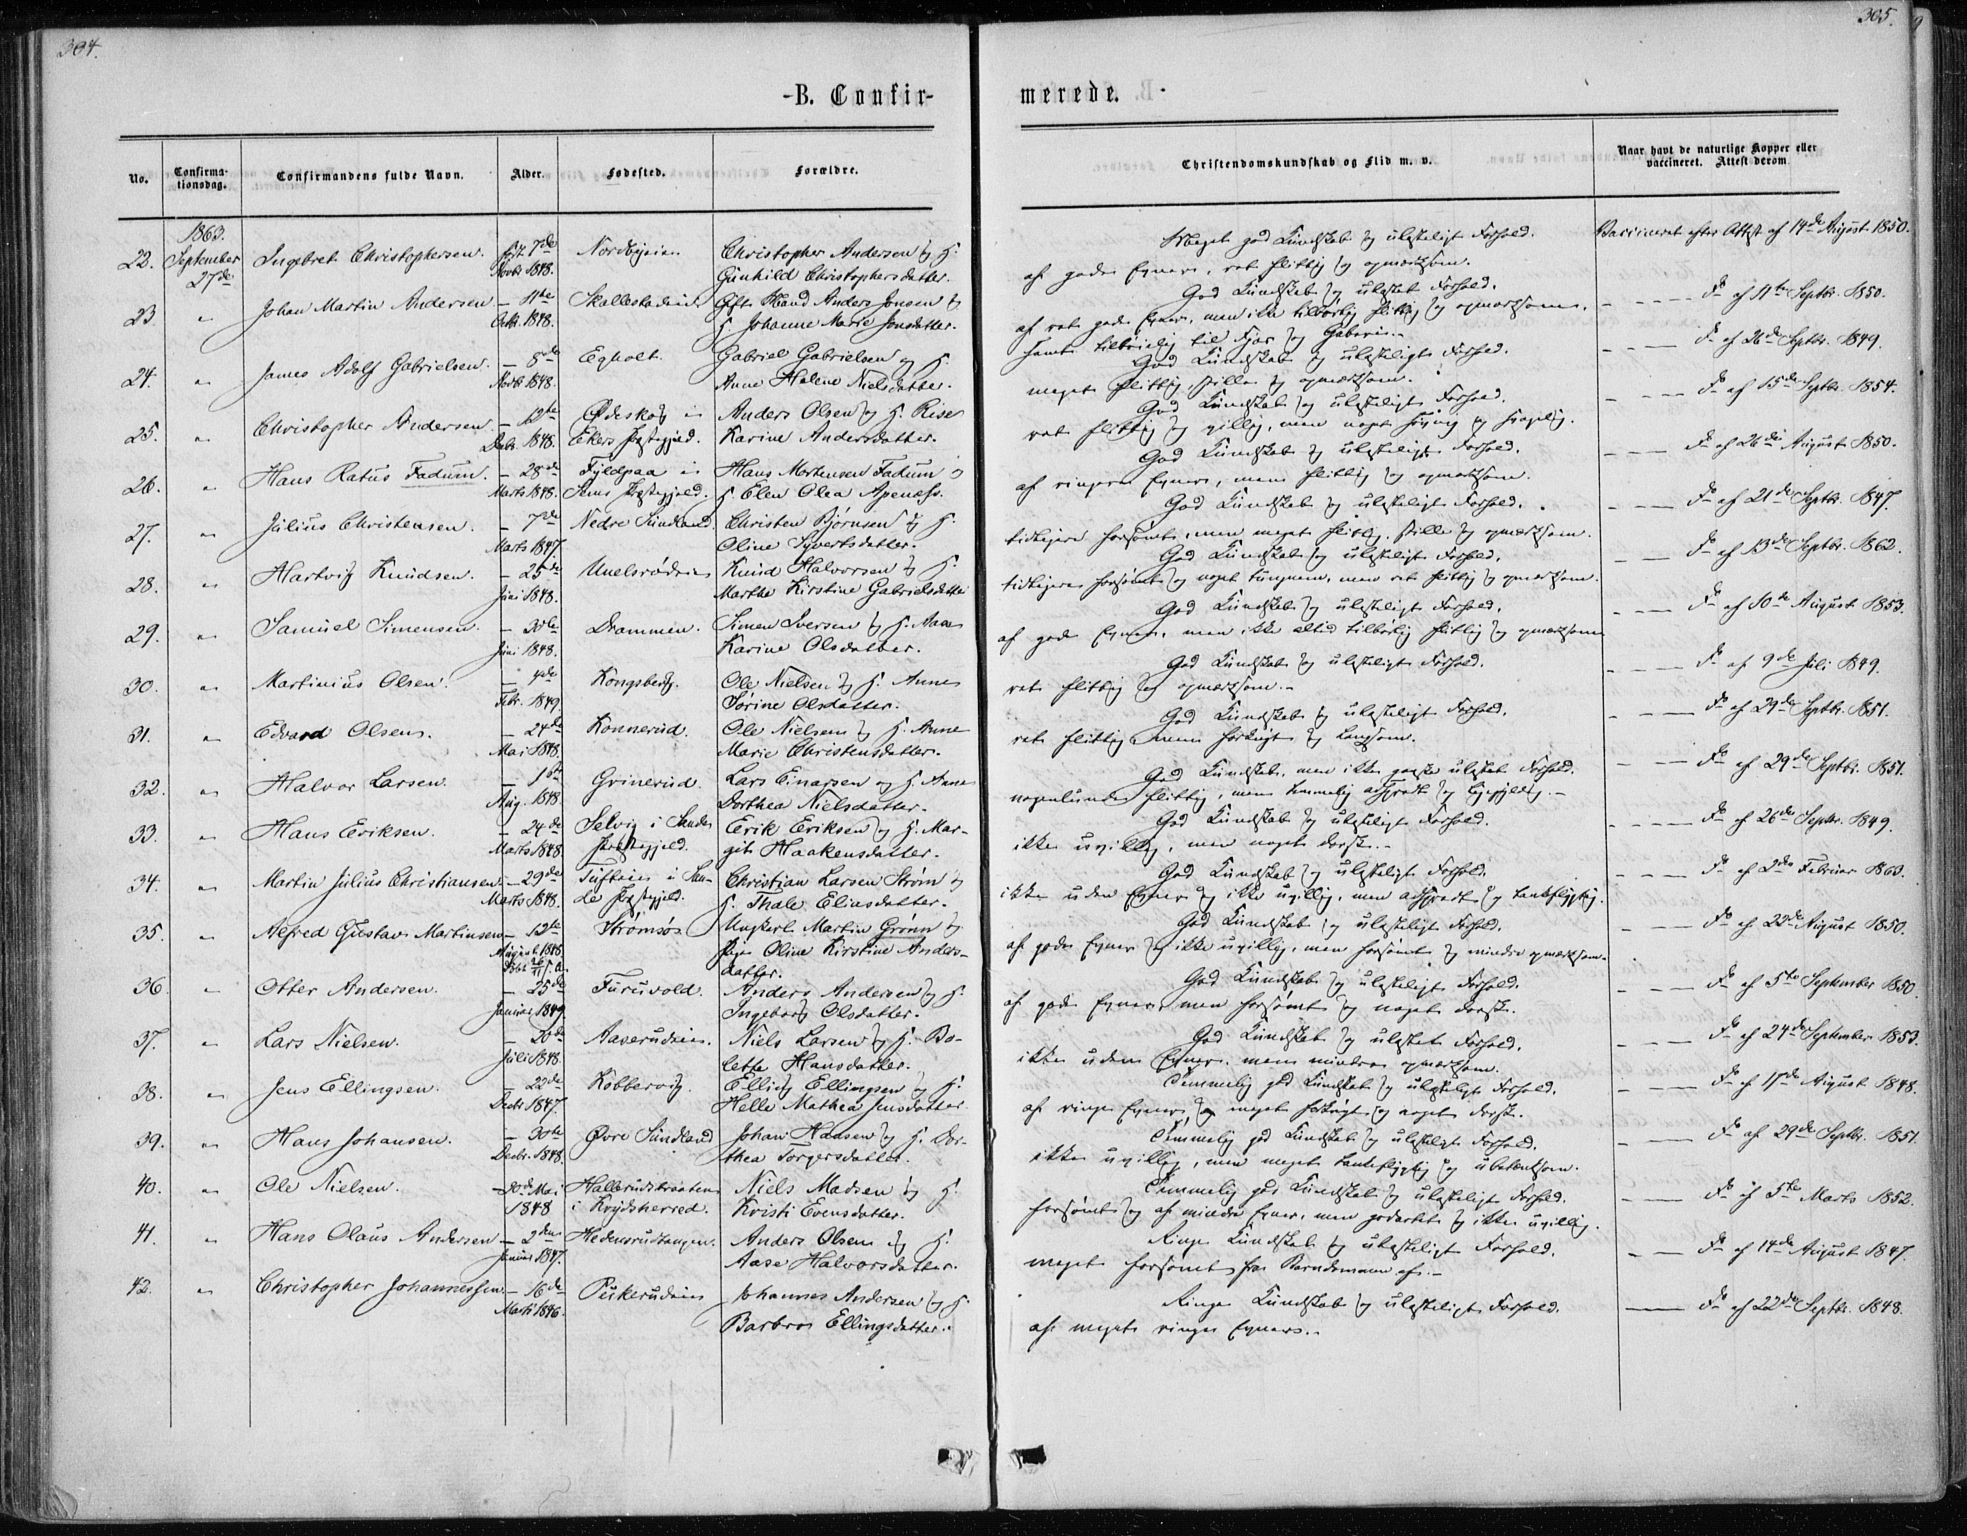 304.
-B. Confir-
No.
Confirma-
tionsdag.
Confirmandens fulde Navn.
Alder.
Fødested.
Forældre.
1863.
22. September Ingebret Christophersen. 7de Nordbyeien Christopher Andersen og H.
27de Novbr 1848. Gunhild Christophersdatter.
23. " Johan Martin Andersen — 11te Skallestadeiet Gift Mand Anders Jonsen og
Octbr. 1848. H. Johanne Marie Jonsdatter.
24. " James Adolf Gabrielsen. — 8de Egholt. Gabriel Gabrielsen og H.
Novbr 1848. Anne Helene Nielsdatter.
25. " Christopher Andersen. — 12te Ødeskog i Anders Olsen og H. Rise
Decbr. 1848. Ekers Præstegjeld. Karine Andersdatter.
26. " Hans Ratus Fadum. — 28de i Hans Mortensen Fadum og
Marts 1848. Sems Præstegjeld. H. Elen Olea
27. " Julius Christensen. — 7de Nedre Sundland. Christen Bjørnsen og H.
Marts 1847. Oline Syvertsdatter.
28. " Hartvig Knudsen. — 25de Knud Halvorsen og H.
Juni 1848. Marthe Kirstine Gabrielsdatter
29. " Samuel Simensen. — 30te Drammen. Simen Iversen og H. Anne
Juni 1848. Karine Olsdatter.
30. " Martinius Olsen. — Kongsberg. Ole Nielsen og H. Anne
Febr. 1849. Sørine Olsdatter.
31. " Edvard Olsen. — 24de Konnerud. Ole Nielsen og H. Anne
Mai 1848. Marie Christensdatter.
32. " Halvor Larsen. — 1ste Grinerud. Lars Einarsen og H. Anne
Aug. 1848. Dorthea Nielsdatter.
33. " Hans Eriksen. — 24de Selvig i Sande Erik Eriksen og H. Mar-
Marts 1848. Præstegjeld. git Haakensdatter.
34. " Martin Julius Christiansen — 29de Tufteiet i San- Christian Larsen Strøm og
Marts 1848. de Præstegjeld. H. Thale Eliasdatter.
35. " Alfred Gustav Martinsen — 12te Strømsø. Ungkarl Martin Grønn og
August 1848. Pige Oline Kirstine Anders-
datter.
36. " Otter Andersen. — 25de Furuvold. Anders Andersen og H.
Januar 1849. Ingeborg Olsdatter.
37. " Lars Nielsen. — 30te Aaserudeiet. Niels Larsen og H. Bo-
Juli 1848. lette Hansdatter.
38. " Jens Ellingsen. — 22de Kobbervig. Elling Ellingsen og H.
Decbr 1847. Helle Mathea Jensdatter.
39. " Hans Johansen. — 30te Øvre Sundland Johan Hansen og H. Dor-
Decbr. 1848. thea Torgersdatter.
40. " Ole Nielsen. — 30te Mai Hallerudsbraaten Niels Madsen og H.
1848 i Krydsherred. Kristi Evensdatter.
41. " Hans Olaus Andersen — 2den Hedensrudtangen. Anders Olsen og H.
Januar 1847. Aase Halvorsdatter.
42. " Christopher Johannessen — 16de Puskerudeiet Johannes Andersen og H.
Marts 1846. Barbro Ellingsdatter.
305.
merede.
Christendomskundskab og Flid m. v.
Naar havt de naturlige Kopper eller
vaccineret. Attest derom.
Meget god Kundskab og ulasteligt Forhold. Vaccineret efter Attest af 14de August 1850.
af gode Evner, ret flittig og opmærksom.
God Kundskab og ulastet Forhold. — Do af 11te Septbr. 1850.
af ret gode Evner, men ikke tilbørlig flittig og opmærksom,
— Do af 26de Septbr. 1849.
God Kundskab og ulasteligt Forhold.
meget flittig, stille og opmærksom. — Do af 15de Septbr. 1854.
God Kundskab og ulasteligt Forhold.
ret flittig og villig, men noget
God Kundskab og ulasteligt Forhold. — Do af 26de August 1850.
af ringere Evner, men flittig og opmærksom.
God Kundskab og ulasteligt Forhold. — Do af 21de Septbr. 1847.
tidligere forsømt, men meget flittig, stille og opmærksom.
God Kundskab og ulasteligt Forhold. — Do af 13de Septbr. 1862.
tidligere forsømt og noget tungnem, men ret flittig og opmærksom.
God Kundskab og ulasteligt Forhold. — Do af 10de August 1853.
af gode Evner, men ikke altid tilbørlig flittig og opmærksom
God Kundskab og ulasteligt Forhold. — Do af 9de Juli 1849.
ret flittig og opmærksom.
God Kundskab og ulasteligt Forhold. — Do af 29de Septbr. 1851.
ret flittig men og langsom.
God Kundskab, men ikke ganske ulastet Forhold. — Do af 29de Septbr. 1851.
nogenlunde flittig, men temmelig adspredt og
God Kundskab og ulasteligt Forhold. — Do af 26de Septbr. 1849.
ikke uvillig, men noget dorsk.
God Kundskab og ulasteligt Forhold. — Do af 2den Februar 1863.
ikke uden Evner og ikke uvillig, men adspredt og tankeflygtig.
God Kundskab og ulasteligt Forhold. — Do af 22de August 1850.
af gode Evner og ikke uvillig, men forsømt og mindre opmærksom.
God Kundskab og ulasteligt Forhold. — Do af 5te September 1850.
af gode Evner, men forsømt og noget dorsk.
God Kundskab og ulastet Forhold. — Do af 24de September 1853.
ikke uden Evner, men mindre opmærksom.
Temmelig god Kundskab og ulasteligt Forhold. — Do af 11te August 1848.
af ringe Evner og meget og noget dorsk.
Temmelig god Kundskab og ulasteligt Forhold. — Do af 29de Septbr. 1851.
ikke uvillig, men meget tankeflygtig og ubetænksom.
Temmelig god Kundskab og ulasteligt Forhold. — Do af 5te Marts 1852.
forsømt og af mindre Evner, men godartet og ikke uvillig.
Ringe Kundskab og ulasteligt Forhold. — Do af 14de August 1847.
meget forsømt fra Barndommen af.
Ringe Kundskab og ulasteligt Forhold. — Do af 22de Septbr. 1848.
af meget ringe Evner.